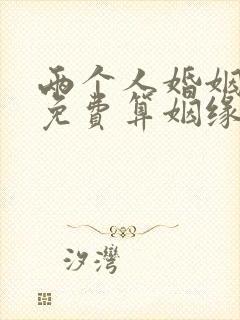 两个人婚姻
免费算姻缘
汐湾